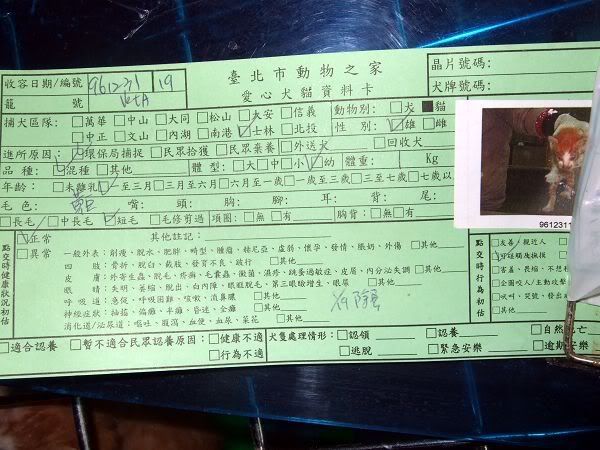 臺北市動物之家
愛心犬貓資料卡
收容日期/編號 961231 19
籠號
晶片號碼:
犬牌號碼:
捕犬區隊: □萬華 □中山 □大同 □松山 □大安 □信義
□中正 □文山 □內湖 □南港 ☑士林 □北投
動物別: □犬 ■貓
性別: ☑雄 □雌
進所原因: ☑環保局捕捉 □民眾拾獲 □民眾棄養 □外送犬 □回收犬
品種: ☑混種 □其他 體型: □大 □中 □小 ☑幼 體重: Kg
年齡: □未離乳 ☑一至三月 □三至六月 □六月至一歲 □一歲至三歲 □三至七歲 □七歲以
毛色: 嘴: 頭: 胸: 腳: 耳: 背: 尾:
□長毛 □中長毛 ☑短毛 □毛修剪過 項圈: □無 □有 胸背: □無 □有
961231
點交時健康狀況初估
☑正常 其他註記:
□異常
一般外表: 削瘦、脫水、肥胖、畸型、腫瘤、赫尼亞、虛弱、懷孕、發情、脹奶、外傷 □其他
四肢: 骨折、脫臼、截肢、發育不良、跛行 □其他
皮膚: 外寄生蟲、脫毛、疥癬、毛囊蟲、黴菌、濕疹、跳蚤過敏症、皮屑、內分泌失調 □其他
眼睛: 失明、萎縮、脫出、白內障、眼瞼脫毛、第三眼瞼增生、眼屎 □其他
呼吸道: 急促、呼吸困難、咳嗽、流鼻膿 □其他
神經症狀: 抽搐、偏癱、半癱、昏迷、全癱 □其他
消化道/泌尿道: 嘔吐、腹瀉、血便、血尿、菜花 □其他
點交時行為初估
□友善/親近人
□可碰觸
□害羞、長縮、不想
□企圖咬人/主動攻擊
□吠叫、哭號、發出
□其他
□適合認養 □暫不適合民眾認養原因: □健康不適
□行為不適
犬隻處理情形: □認領 □認養 □自然死亡
□逃脫 □緊急安樂 □逾期安樂